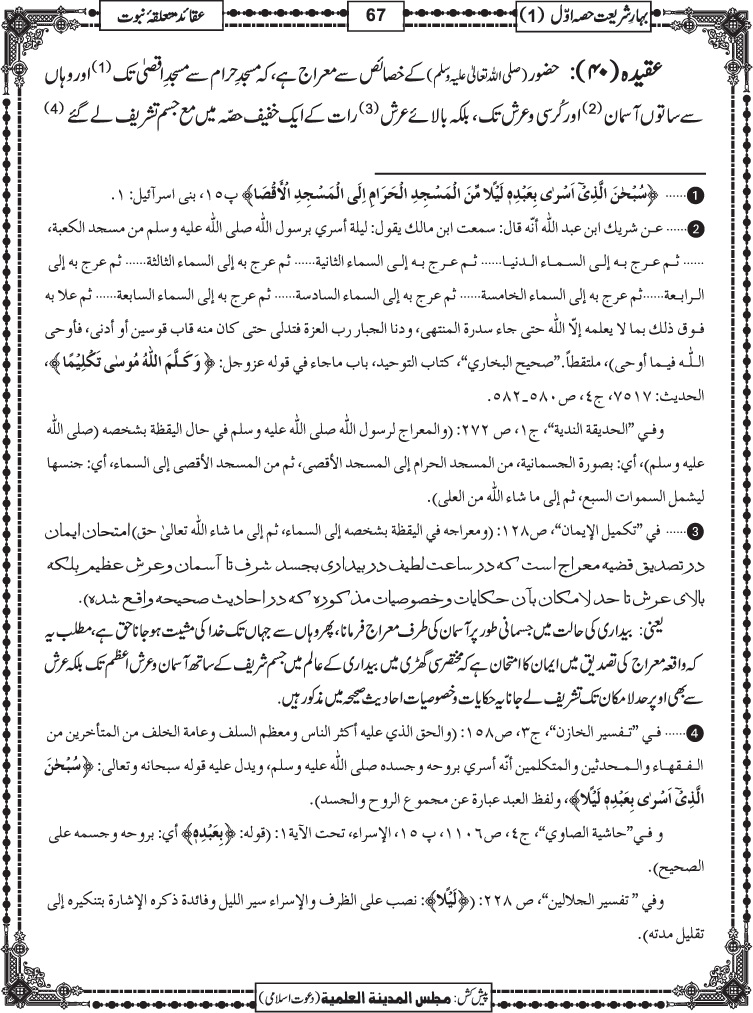 بہارِ شریعت حصہ اوّل (1)
67
عقائد متعلقۂ نبوت
عقیدہ (۴۰): حضور (صلی اللہ تعالیٰ علیہ وسلم) کے خصائص سے معراج ہے، کہ مسجدِ حرام سے مسجدِ اقصیٰ تک (1) اور وہاں
سے ساتوں آسمان (2) اور کُرسی و عرش تک، بلکہ بالائے عرش (3) رات کے ایک خفیف حصّہ میں مع جسم تشریف لے گئے (4)
1...... ﴿سُبْحٰنَ الَّذِیْۤ اَسْرٰی بِعَبْدِہٖ لَیْلًا مِّنَ الْمَسْجِدِ الْحَرَامِ اِلَی الْمَسْجِدِ الْاَقْصَا﴾ پ۱۵، بنی اسرآئیل: ۱.
2...... عـن شريك ابن عبد الله أنّه قال: سمعت ابن مالك يقول: ليلة أسري برسول الله صلى الله عليه وسلم من مسجد الكعبة،
...... ثـم عـرج بـه إلـى السـمـاء الـدنيـا...... ثـم عـرج بـه إلـى السماء الثانية...... ثم عرج به إلى السماء الثالثة...... ثم عرج به إلى
الـرابـعة......ثم عرج به إلى السماء الخامسة...... ثم عرج به إلى السماء السادسة...... ثم عرج به إلى السماء السابعة...... ثم علا به
فـوق ذلك بما لا يعلمه إلّا الله حتى جاء سدرة المنتهى، ودنا الجبار رب العزة فتدلى حتى كان منه قاب قوسين أو أدنى، فأوحى
الـلّـه فيـمـا أوحى)، ملتقطاً. ”صحيح البخاري“، كتاب التوحيد، باب ماجاء في قوله عزوجل: ﴿وَکَلَّمَ اللّٰہُ مُوسٰی تَکْلِیْمًا﴾،
الحديث: ۷۵۱۷، ج٤، ص۵۸۰ـ۵۸۲.
وفـي ”الحديقة الندية“، ج۱، ص ۲۷۲: (والمعراج لرسول الله صلى الله عليه وسلم في حال اليقظة بشخصه (صلى الله
عليه وسلم)، أي: بصورة الجسمانية، من المسجد الحرام إلى المسجد الأقصى، ثم من المسجد الأقصى إلى السماء، أي: جنسها
ليشمل السموات السبع، ثم إلى ما شاء الله من العلى).
3...... في ”تكميل الإيمان“، ص۱۲۸: (ومعراجه في اليقظة بشخصه إلى السماء، ثم إلى ما شاء الله تعالىٰ حق)امتحان ایمان
در تصدیق قضیه معراج است که در ساعت لطیف در بیداری بجسد شرف تا آسمان و عرش عظیم بلکه
بالای عرش تا حد لامکان بآن حکایات و خصوصیات مذکوره که در احادیث صحیحه واقع شده).
یعنی: بیداری کی حالت میں جسمانی طور پر آسمان کی طرف معراج فرمانا، پھر وہاں سے جہاں تک خدا کی مشیت ہو جانا حق ہے، مطلب یہ
کہ واقعہ معراج کی تصدیق میں ایمان کا امتحان ہے کہ مختصر سی گھڑی میں بیداری کے عالم میں جسم شریف کے ساتھ آسمان و عرش اعظم تک بلکہ عرش
سے بھی اوپر حد لا مکان تک تشریف لے جانا بہ حکایات و خصوصیات احادیث صحیحہ میں مذکور ہیں.
4...... فـي ”تـفسير الخازن“، ج۳، ص۱۵۸: (والحق الذي عليه أكثر الناس ومعظم السلف وعامة الخلف من المتأخرين من
الـفـقهـاء والـمـحدثين والمتكلمين أنّه أسري بروحه وجسده صلى الله عليه وسلم، ويدل عليه قوله سبحانه وتعالى: ﴿سُبْحٰنَ
الَّذِیْۤ اَسْرٰی بِعَبْدِہٖ لَیْلًا﴾، ولفظ العبد عبارة عن مجموع الروح والجسد).
و فـي”حاشية الصاوي“، ج٤، ص۱۱۰٦، پ ۱۵، الإسراء، تحت الآية۱: (قوله: ﴿بِعَبْدِہٖ﴾ أي: بروحه وجسمه على
الصحيح).
وفي ” تفسير الجلالين“، ص ۲۲۸: (﴿لَیْلًا﴾: نصب على الظرف والإسراء سير الليل وفائدة ذكره الإشارة بتنكيره إلى
تقليل مدته).
پیش کش: مجلس المدینۃ العلمیۃ (دعوتِ اسلامی)